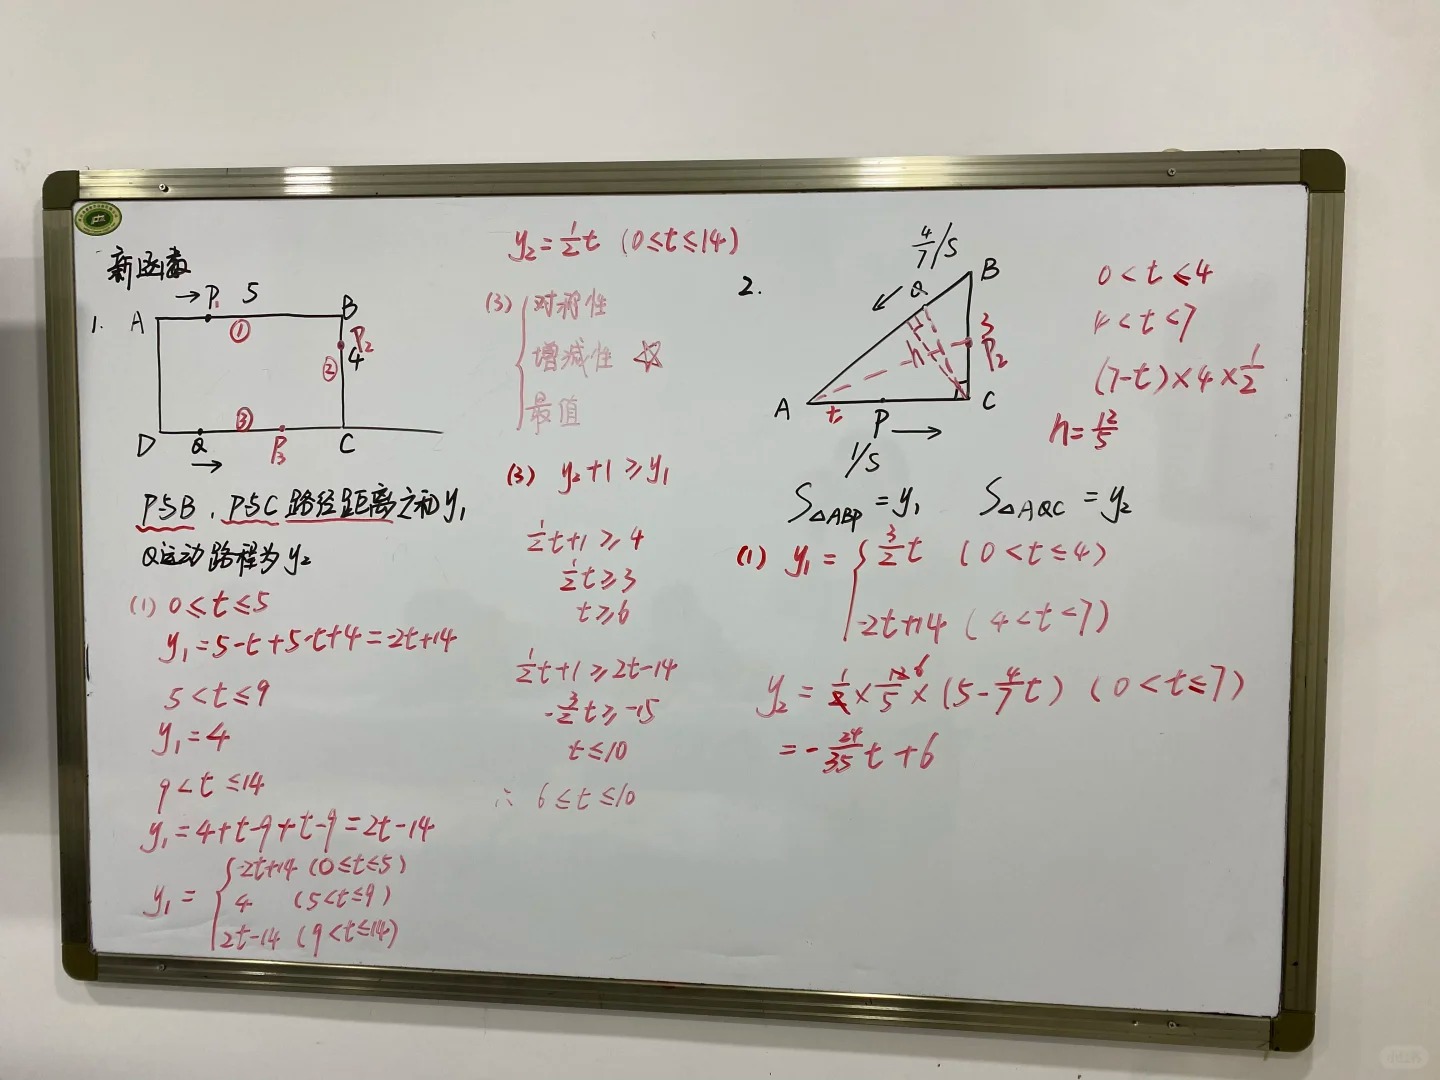 新函数
1.
A
→
P₁
5
B
①
P₂
②
4
③
D
Q
P₃
C
→
P与B，P与C路径距离之和y₁
Q运动路程为y₂
(1) 0≤t≤5
y₁=5-t+5-t+4=-2t+14
5<t≤9
y₁=4
9<t≤14
y₁=4+t-9+t-9=2t-14
y₁= { -2t+14 (0≤t≤5)
4 (5<t≤9)
2t-14 (9<t≤14)
y₂=½t (0≤t≤14)
(3) { 对称性
增减性 ☆
最值
(3) y₂+1≥y₁
½t+1≥4
½t≥3
t≥6
½t+1≥2t-14
-3/2t≥-15
t≤10
∴ 6≤t≤10
2.
4/7/S
B
Q
3
h
P₂
A
t
P
C
→
1/S
0<t≤4
4<t<7
(7-t)×4×½
h=12/5
S△ABP=y₁ S△AQC=y₂
(1) y₁= { 3/2t (0<t≤4)
-2t+14 (4<t<7)
y₂=1/2×12/5 6×(5-4/7t) (0<t≤7)
=-24/35t+6